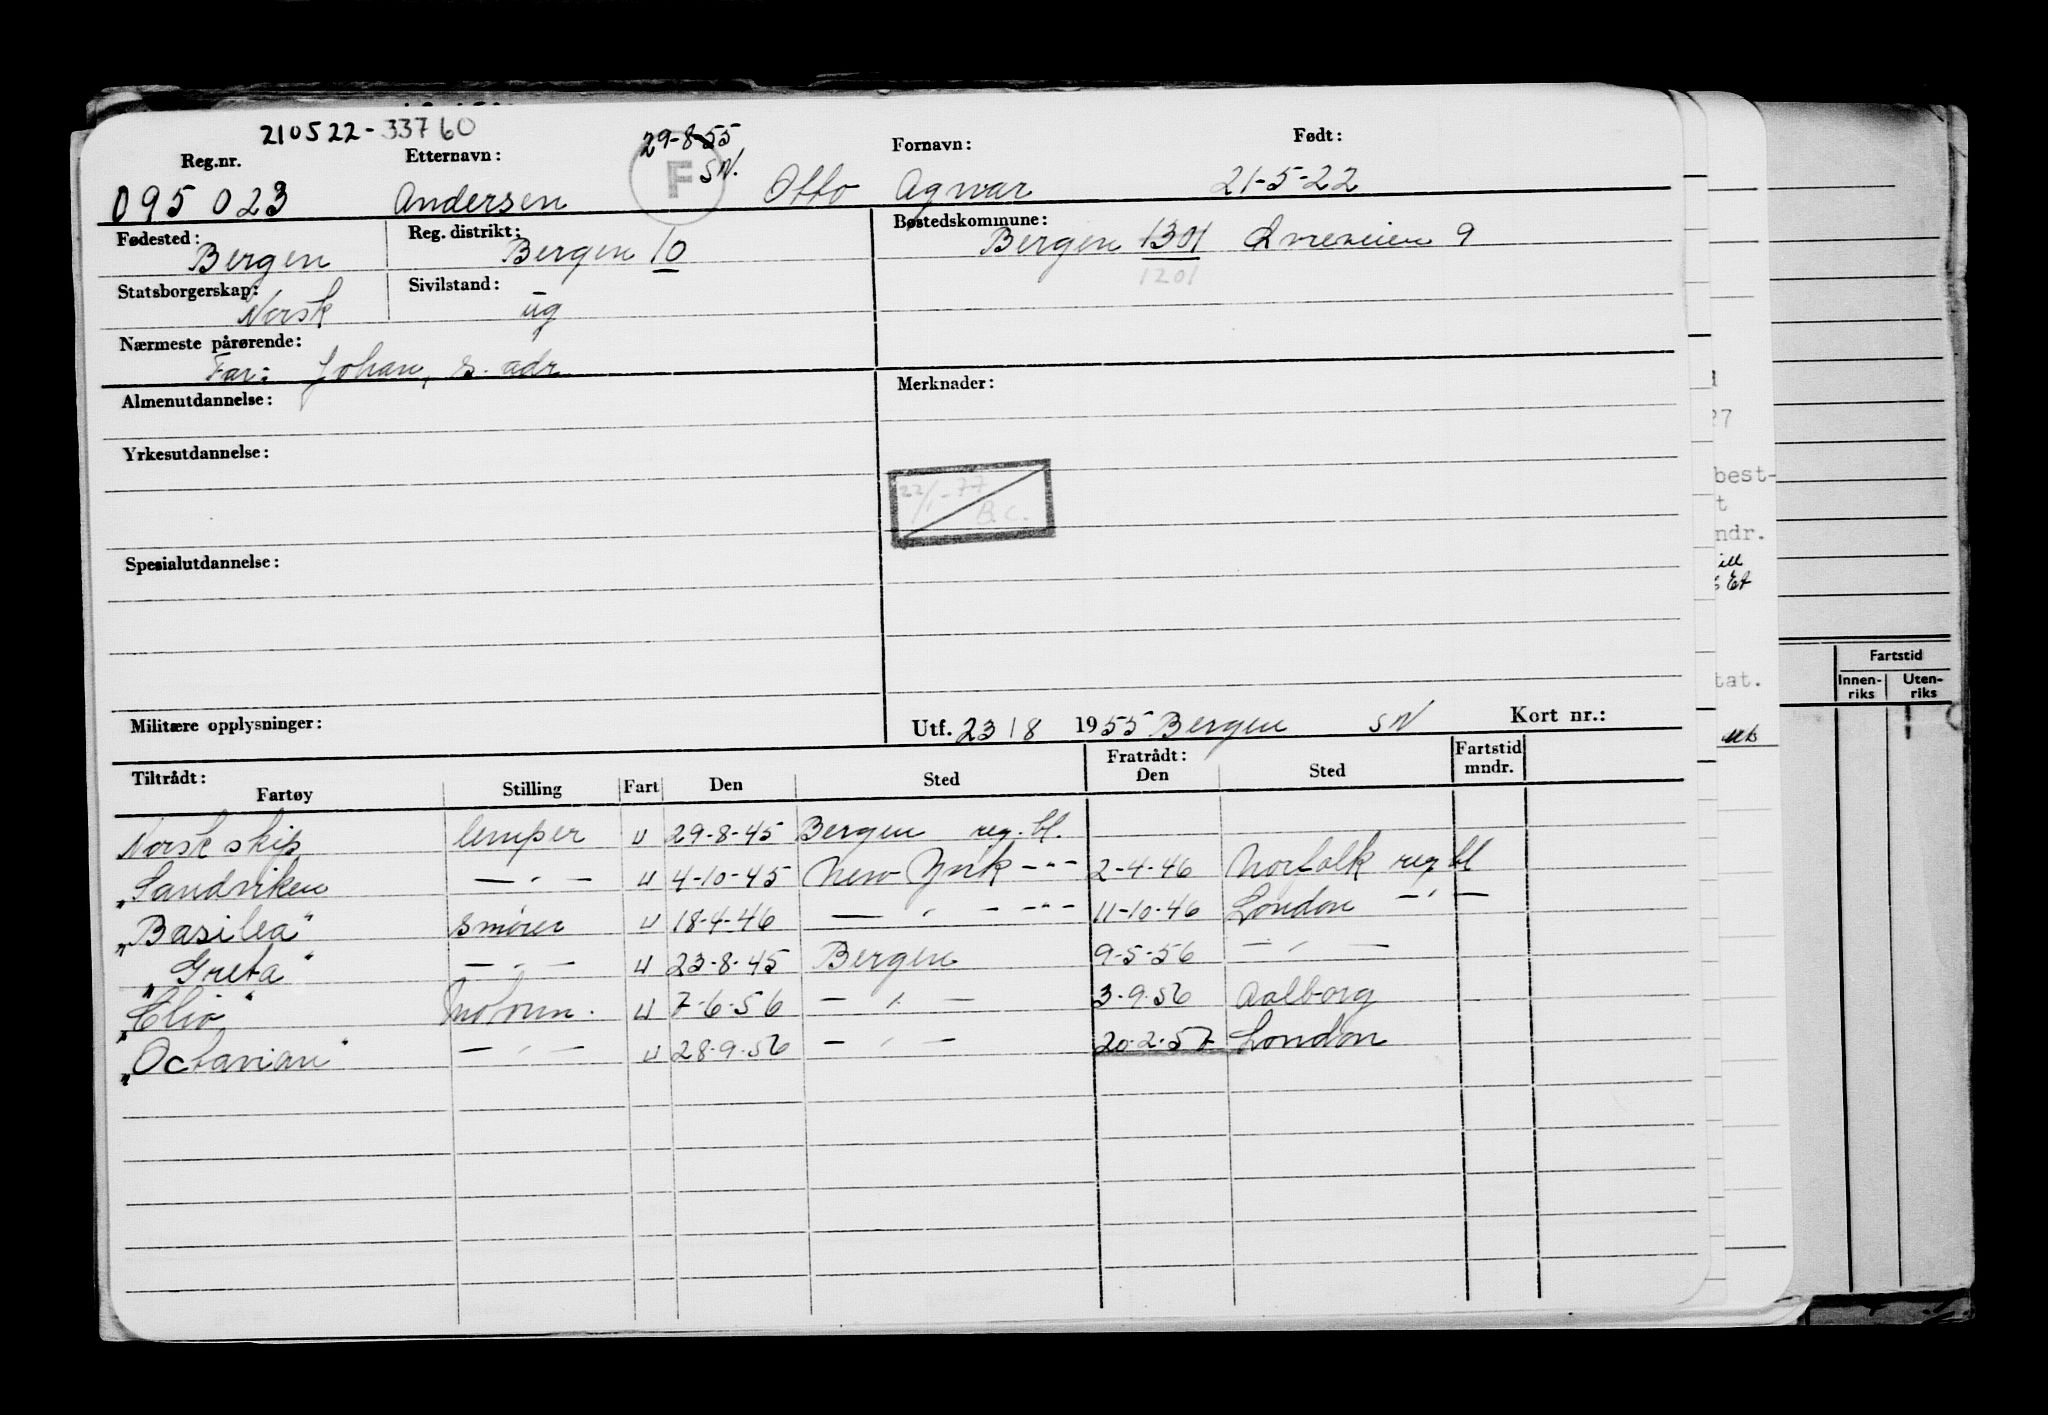 210522-33760
29-8-55
Reg.nr. Etternavn: F SN. Fornavn: Født:
095023 Andersen Otto Agnar 21-5-22
Fødested: Reg. distrikt: Bostedskommune:
Bergen Bergen 10 Bergen 1301 9
1201
Statsborgerskap: Sivilstand:
Norsk ug
Nærmeste pårørende:
Far: Johan, s. adr.
Almenutdannelse: Merknader:
Yrkesutdannelse:
22/1-77
B.C.
Spesialutdannelse:
Militære opplysninger: Utf. 23/8 1955 Bergen SN Kort nr.:
Tiltrådt: Fratrådt: Fartstid
Fartøy Stilling Fart Den Sted Den Sted mndr.
Norsk skip lemper u 29-8-45 Bergen reg. bl.
"Sandviken — " — u 4-10-45 New York -"- 2-4-46 Norfolk reg bl
"Basilea" smører u 18-4-46 — " — -"- 11-10-46 London — " —
"Greta" — " — u 23-8-45 Bergen 9-5-56 — " —
"Clio" Motorm. u 7-6-56 — " — 3-9-56 Aalborg
"Octavian" — " — u 28-9-56 — " — 20-2-57 London
27
best-
t
ndr.
ill
s Et
tat.
Fartstid
Innen-
riks
Uten-
riks